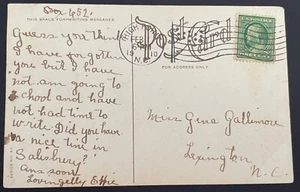 Box 652.
THIS SPACE FOR WRITING MESSAGES
Guess you think
I have forgotten
you but I have
not am going to
school and have
not had time to
write. Did you have
a nice time in
Salisbury?
Ans soon
Lovingly Effie
HIGH
FEB
6 PM
1910
N.C.
FOR ADDRESS ONLY
Miss Gena Gallimore
Lexington
N. C.